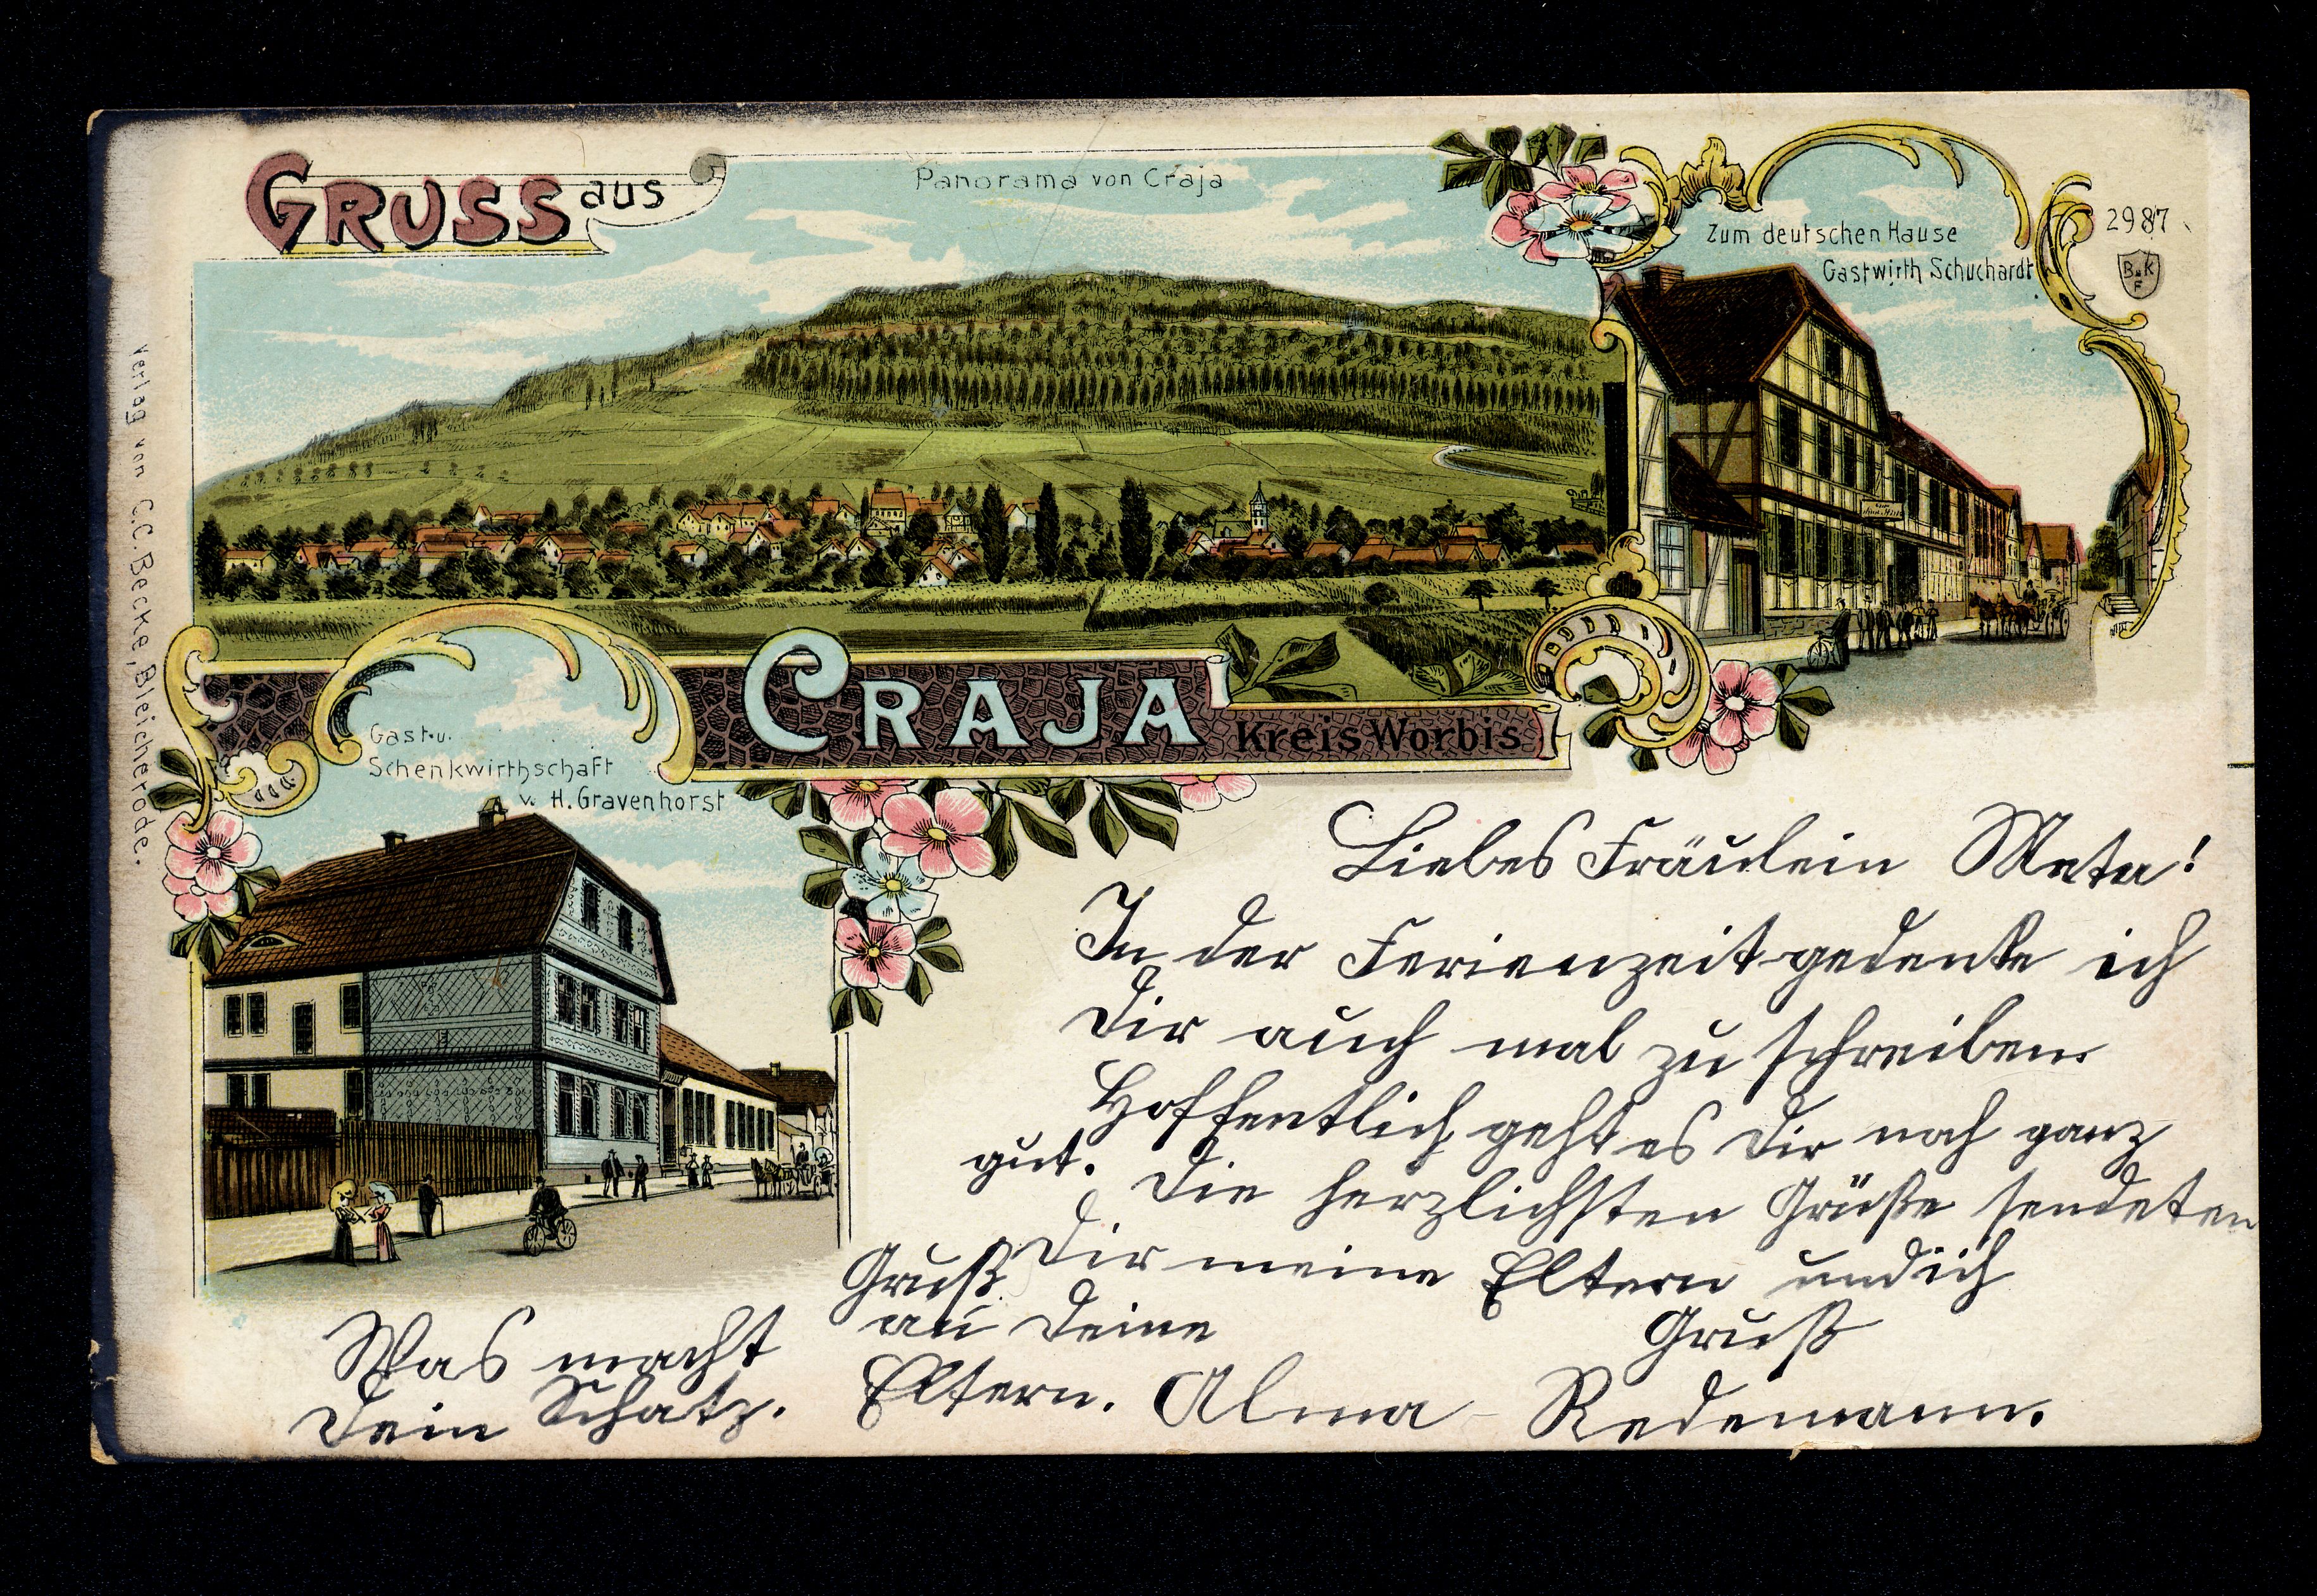 GRUSS aus
Panorama von Craja
Zum deutschen Hause
Gastwirth Schuchardt
2987
B.K
F
Verlag von C.C. Becke, Bleicherode.
CRAJA Kreis Worbis
Gast- u.
Schenkwirthschaft
v. H. Gravenhorst
Liebes Fräulein Meta!
In der Ferienzeit gedenke ich
Dir auch mal zu schreiben.
Hoffentlich geht es Dir noch ganz
gut. Die herzlichsten Grüße sendeten
Dir meine Eltern und ich
Gruß
Alma Redemann.
Gruß
an Deine
Eltern.
Was macht
Dein Schatz.